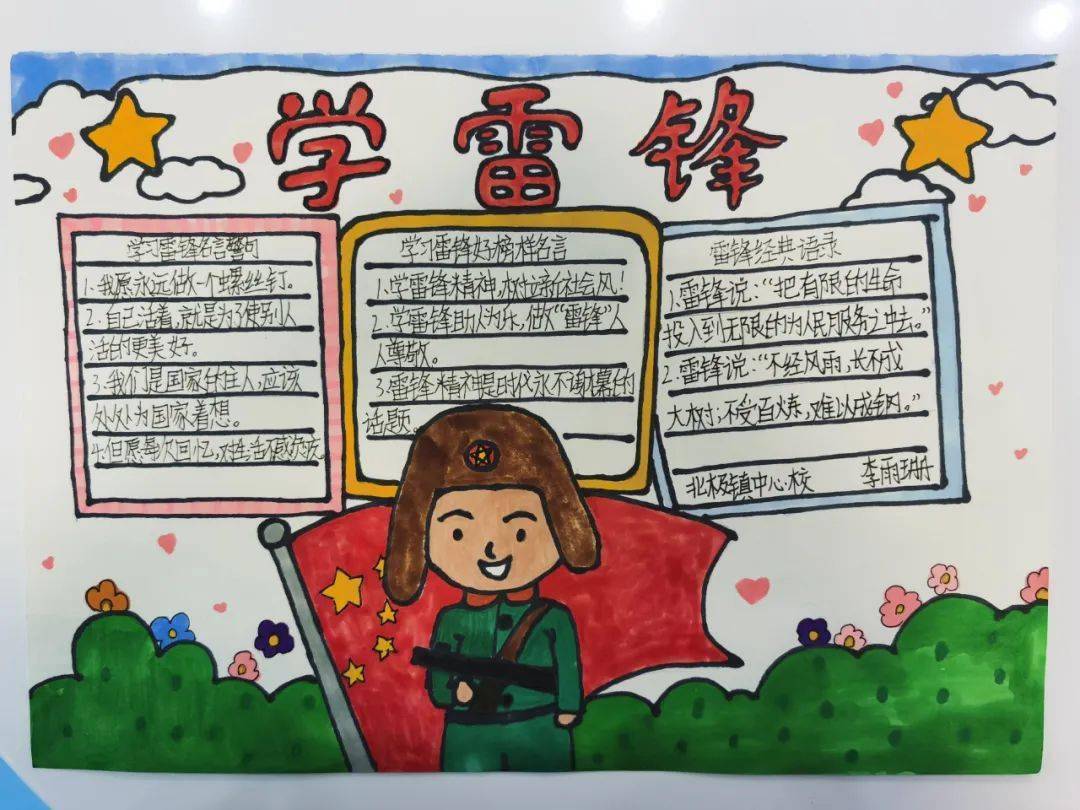 学雷锋
学习雷锋名言警句
1.我愿永远做一个螺丝钉。
2.自己活着,就是为了使别人
活的更美好。
3.我们是国家的主人,应该
处处为国家着想。
4.但愿每次回忆,对生活不感负疚
学习雷锋好榜样名言
1.学雷锋精神,树立新社会风!
2.学雷锋助人为乐,做“雷锋”人
人尊敬。
3.雷锋精神是时代永不谢幕的
话题。
雷锋经典语录
1.雷锋说:“把有限的生命
投入到无限的为人民服务之中去。”
2.雷锋说:“不经风雨,长不成
大树;不受百炼,难以成钢。”
北极镇中心校 李雨珊